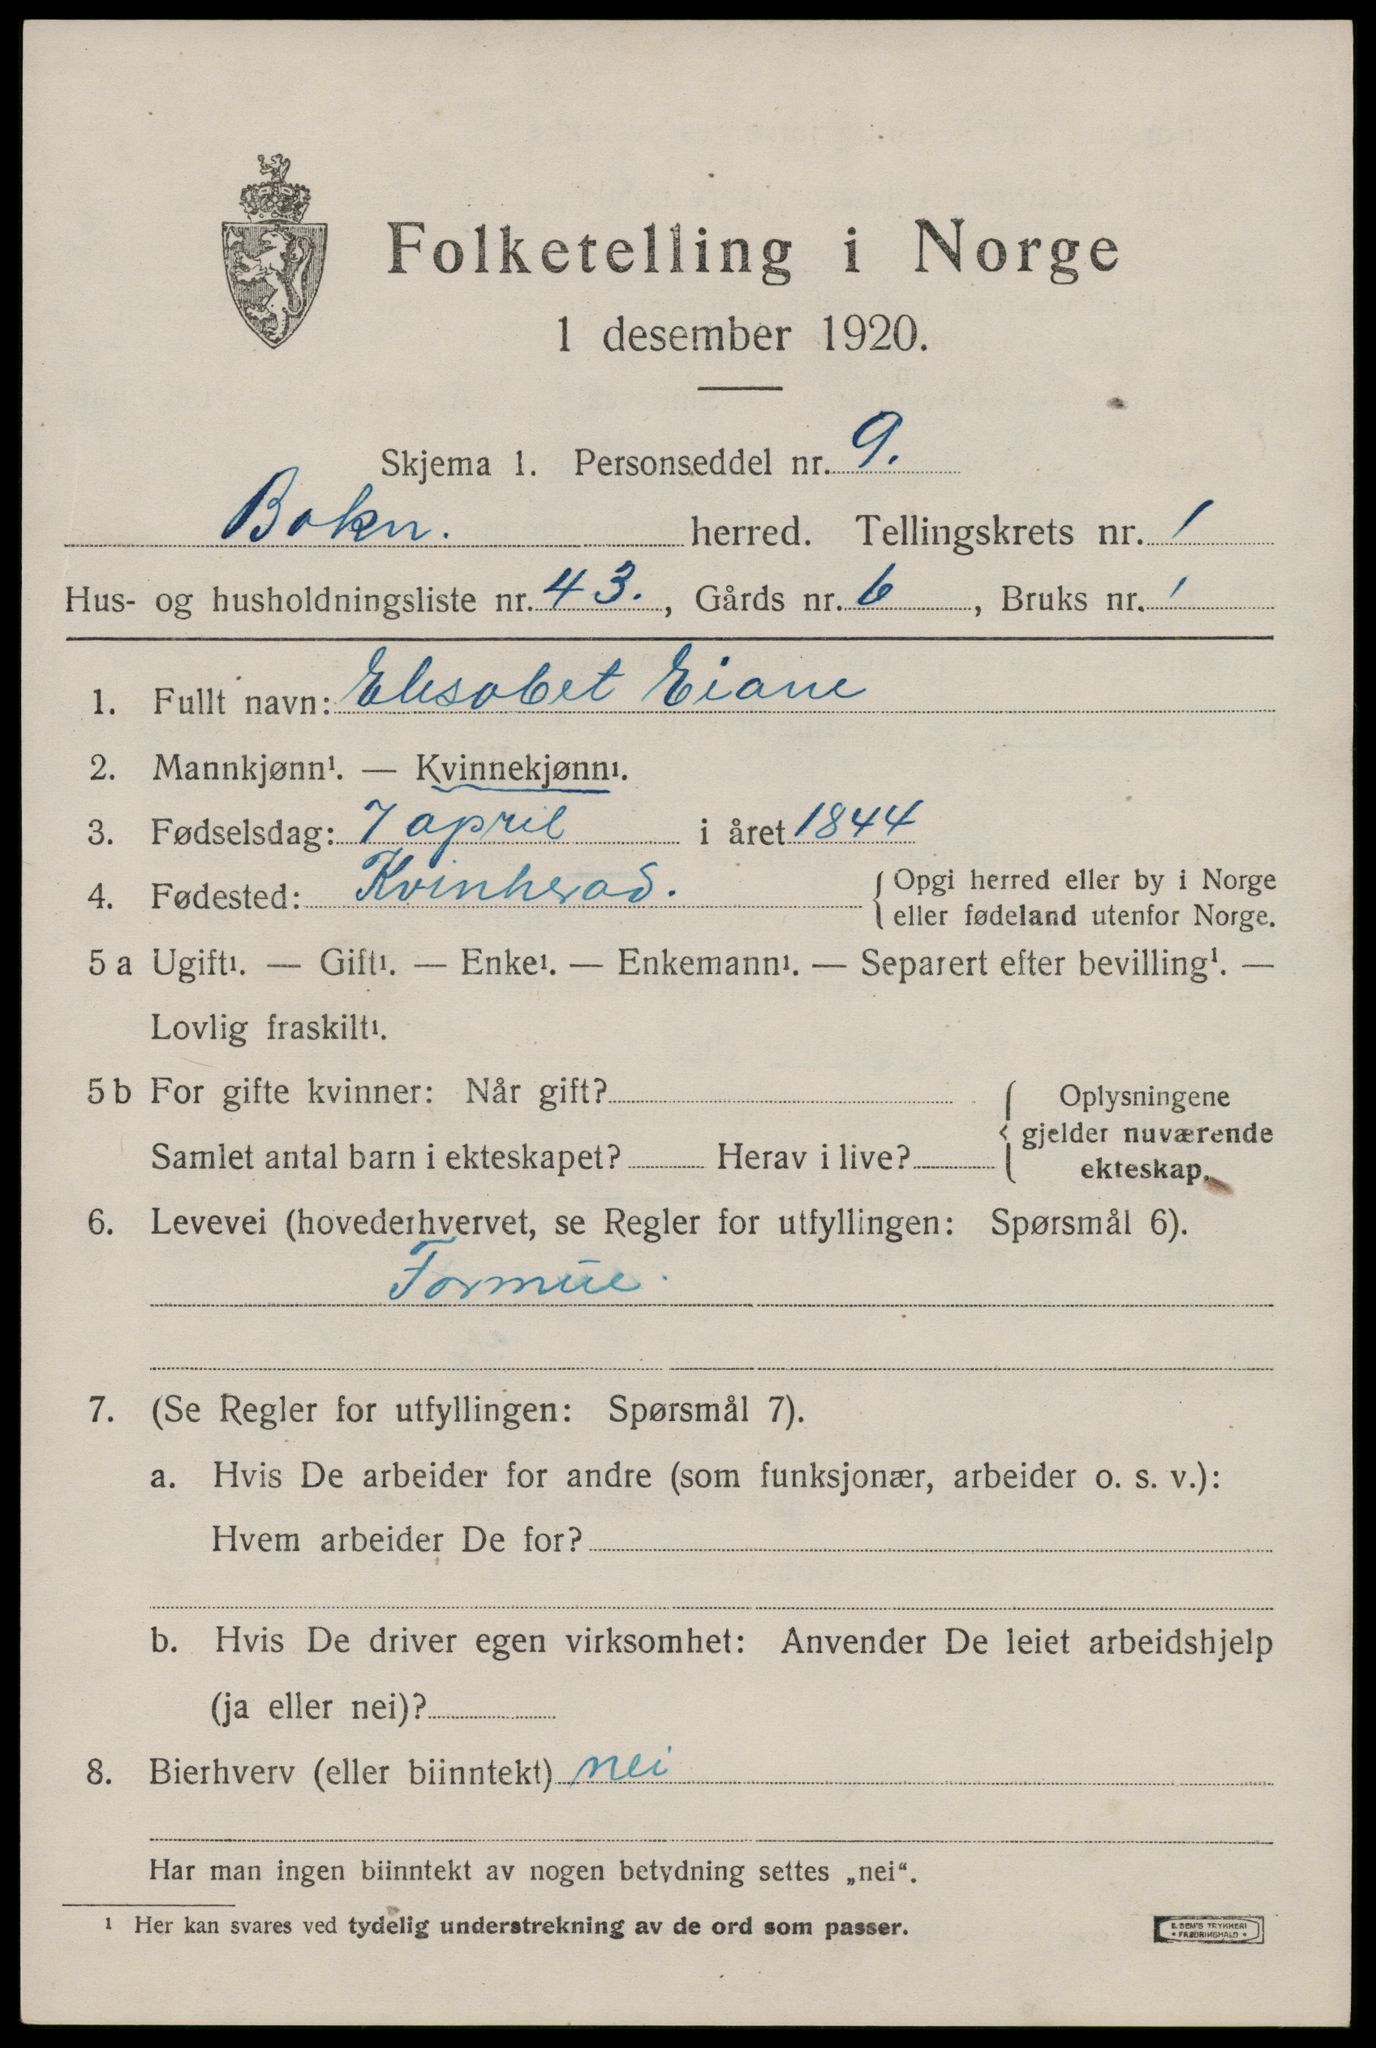 Folketelling i Norge
1 desember 1920.
Skjema 1. Personseddel nr. 9.
Bokn. herred. Tellingskrets nr. 1
Hus- og husholdningsliste nr. 43., Gårds nr. 6, Bruks nr. 1
1. Fullt navn: Elisabet Eiane
2. Mannkjønn¹. — Kvinnekjønn¹.
3. Fødselsdag: 7 april i året 1844
4. Fødested: Kvinherad. { Opgi herred eller by i Norge
eller fødeland utenfor Norge.
5 a Ugift¹. — Gift¹. — Enke¹. — Enkemann¹. — Separert efter bevilling¹. —
Lovlig fraskilt¹.
5 b For gifte kvinner: Når gift? { Oplysningene
gjelder nuværende
Samlet antal barn i ekteskapet? Herav i live? ekteskap.
6. Levevei (hovederhvervet, se Regler for utfyllingen: Spørsmål 6).
Formue.
7. (Se Regler for utfyllingen: Spørsmål 7).
a. Hvis De arbeider for andre (som funksjonær, arbeider o. s. v.):
Hvem arbeider De for?
b. Hvis De driver egen virksomhet: Anvender De leiet arbeidshjelp
(ja eller nei)?
8. Bierhverv (eller biinntekt) nei
Har man ingen biinntekt av nogen betydning settes „nei“.
¹ Her kan svares ved tydelig understrekning av de ord som passer.
E. SEM'S TRYKKERI
• FREDRIKSHALD •